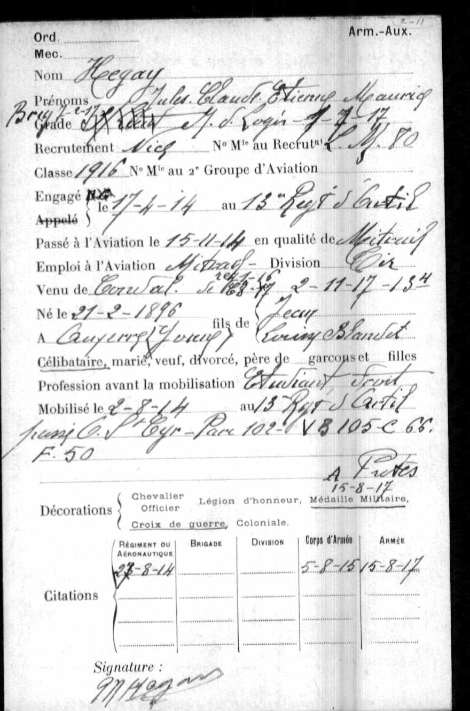 Ord.
Arm.-Aux.
Mec.
Nom Hegay
Prénoms Jules. Claude. Etienne Maurice
Grade M. d. Logis 7-17
Recrutement N° Mle au Recrutnt L. M. 80
Classe 1916 N° Mle au 2e Groupe d'Aviation
Engagé
Appelé le 17-4-14 au 13e Regt d'Artil
Passé à l'Aviation le 15-11-14 en qualité de Mitrail
Emploi à l'Aviation Mitrail- Division
Venu de 2-11-17-
Né le 21-2-1896 fils de Jean
A Auxerre (Yonne) Blandet
Célibataire, marié, veuf, divorcé, père de garçons et filles
Profession avant la mobilisation Etudiant-Droit
Mobilisé le 2-8-14 au 13 Regt d'Artil
C. St Cyr- Parc 102- VB 105-C 66.
F. 50
A
15-8-17
Décorations Chevalier
Officier Légion d'honneur, Médaille Militaire,
Croix de guerre, Coloniale.
Régiment ou Aéronautique Brigade Division Corps d'Armée Armée
23-8-14 5-8-15 15-8-17
Citations
Signature :